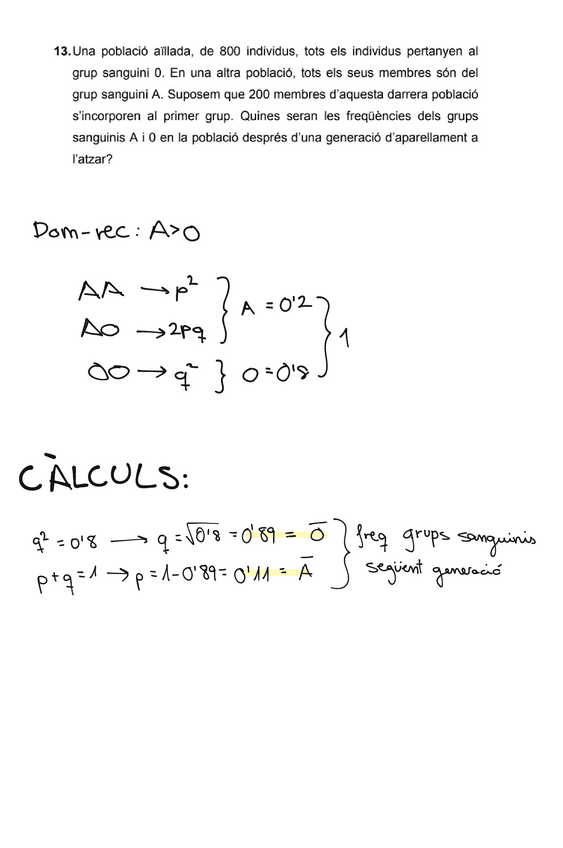 13. Una població aïllada, de 800 individus, tots els individus pertanyen al
grup sanguini 0. En una altra població, tots els seus membres són del
grup sanguini A. Suposem que 200 membres d'aquesta darrera població
s'incorporen al primer grup. Quines seran les freqüències dels grups
sanguinis A i 0 en la població després d'una generació d'aparellament a
l'atzar?
Dom-rec: A>O
AA → p² } A = 0'2 } 1
AO → 2pq
OO → q² } O = 0'8
CÀLCULS:
q² = 0'8 → q = √0'8 = 0'89 = O̅ } freq grups sanguinis
p+q=1 → p = 1-0'89 = 0'11 = A̅ següent generació